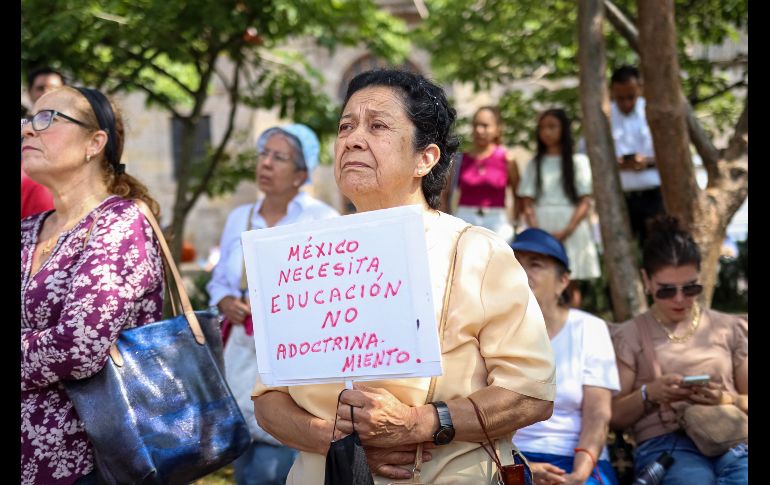 MÉXICO
NECESITA,
EDUCACIÓN
NO
ADOCTRINA-
MIENTO.